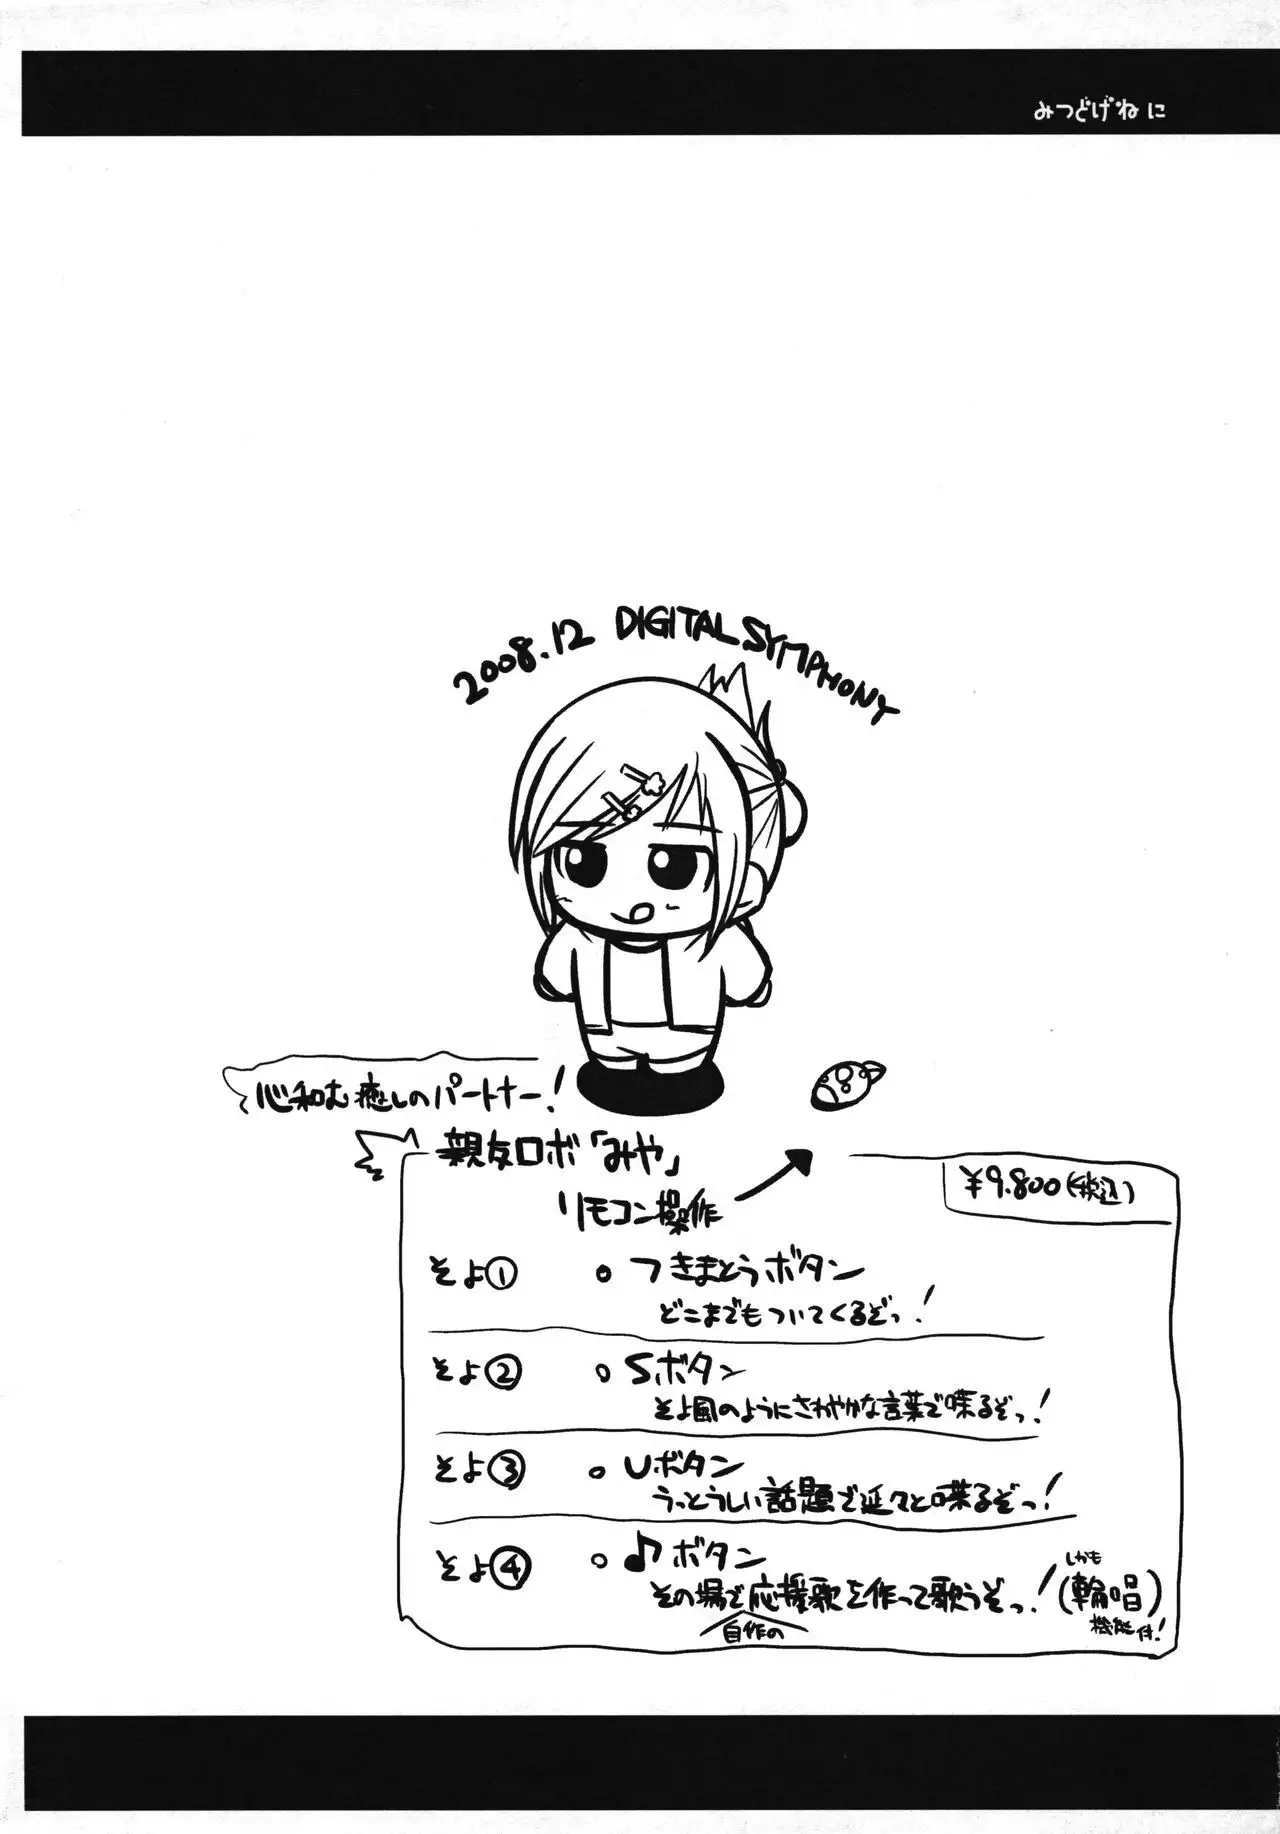 みつどげねに
2008.12 DIGITAL SYMPHONY
心和む癒しのパートナー!
親友ロボ「みや」
リモコン操作
¥9.800(税込)
そよ① 。つきまとうボタン
どこまでもついてくるぞっ!
そよ② 。Sボタン
そよ風のようにさわやかな言葉で喋るぞっ!
そよ③ 。Uボタン
うっとうしい話題で延々と喋るぞっ!
そよ④ 。♪ボタン
その場で応援歌を作って歌うぞっ!(輪唱)
自作の
しかも
機能付!